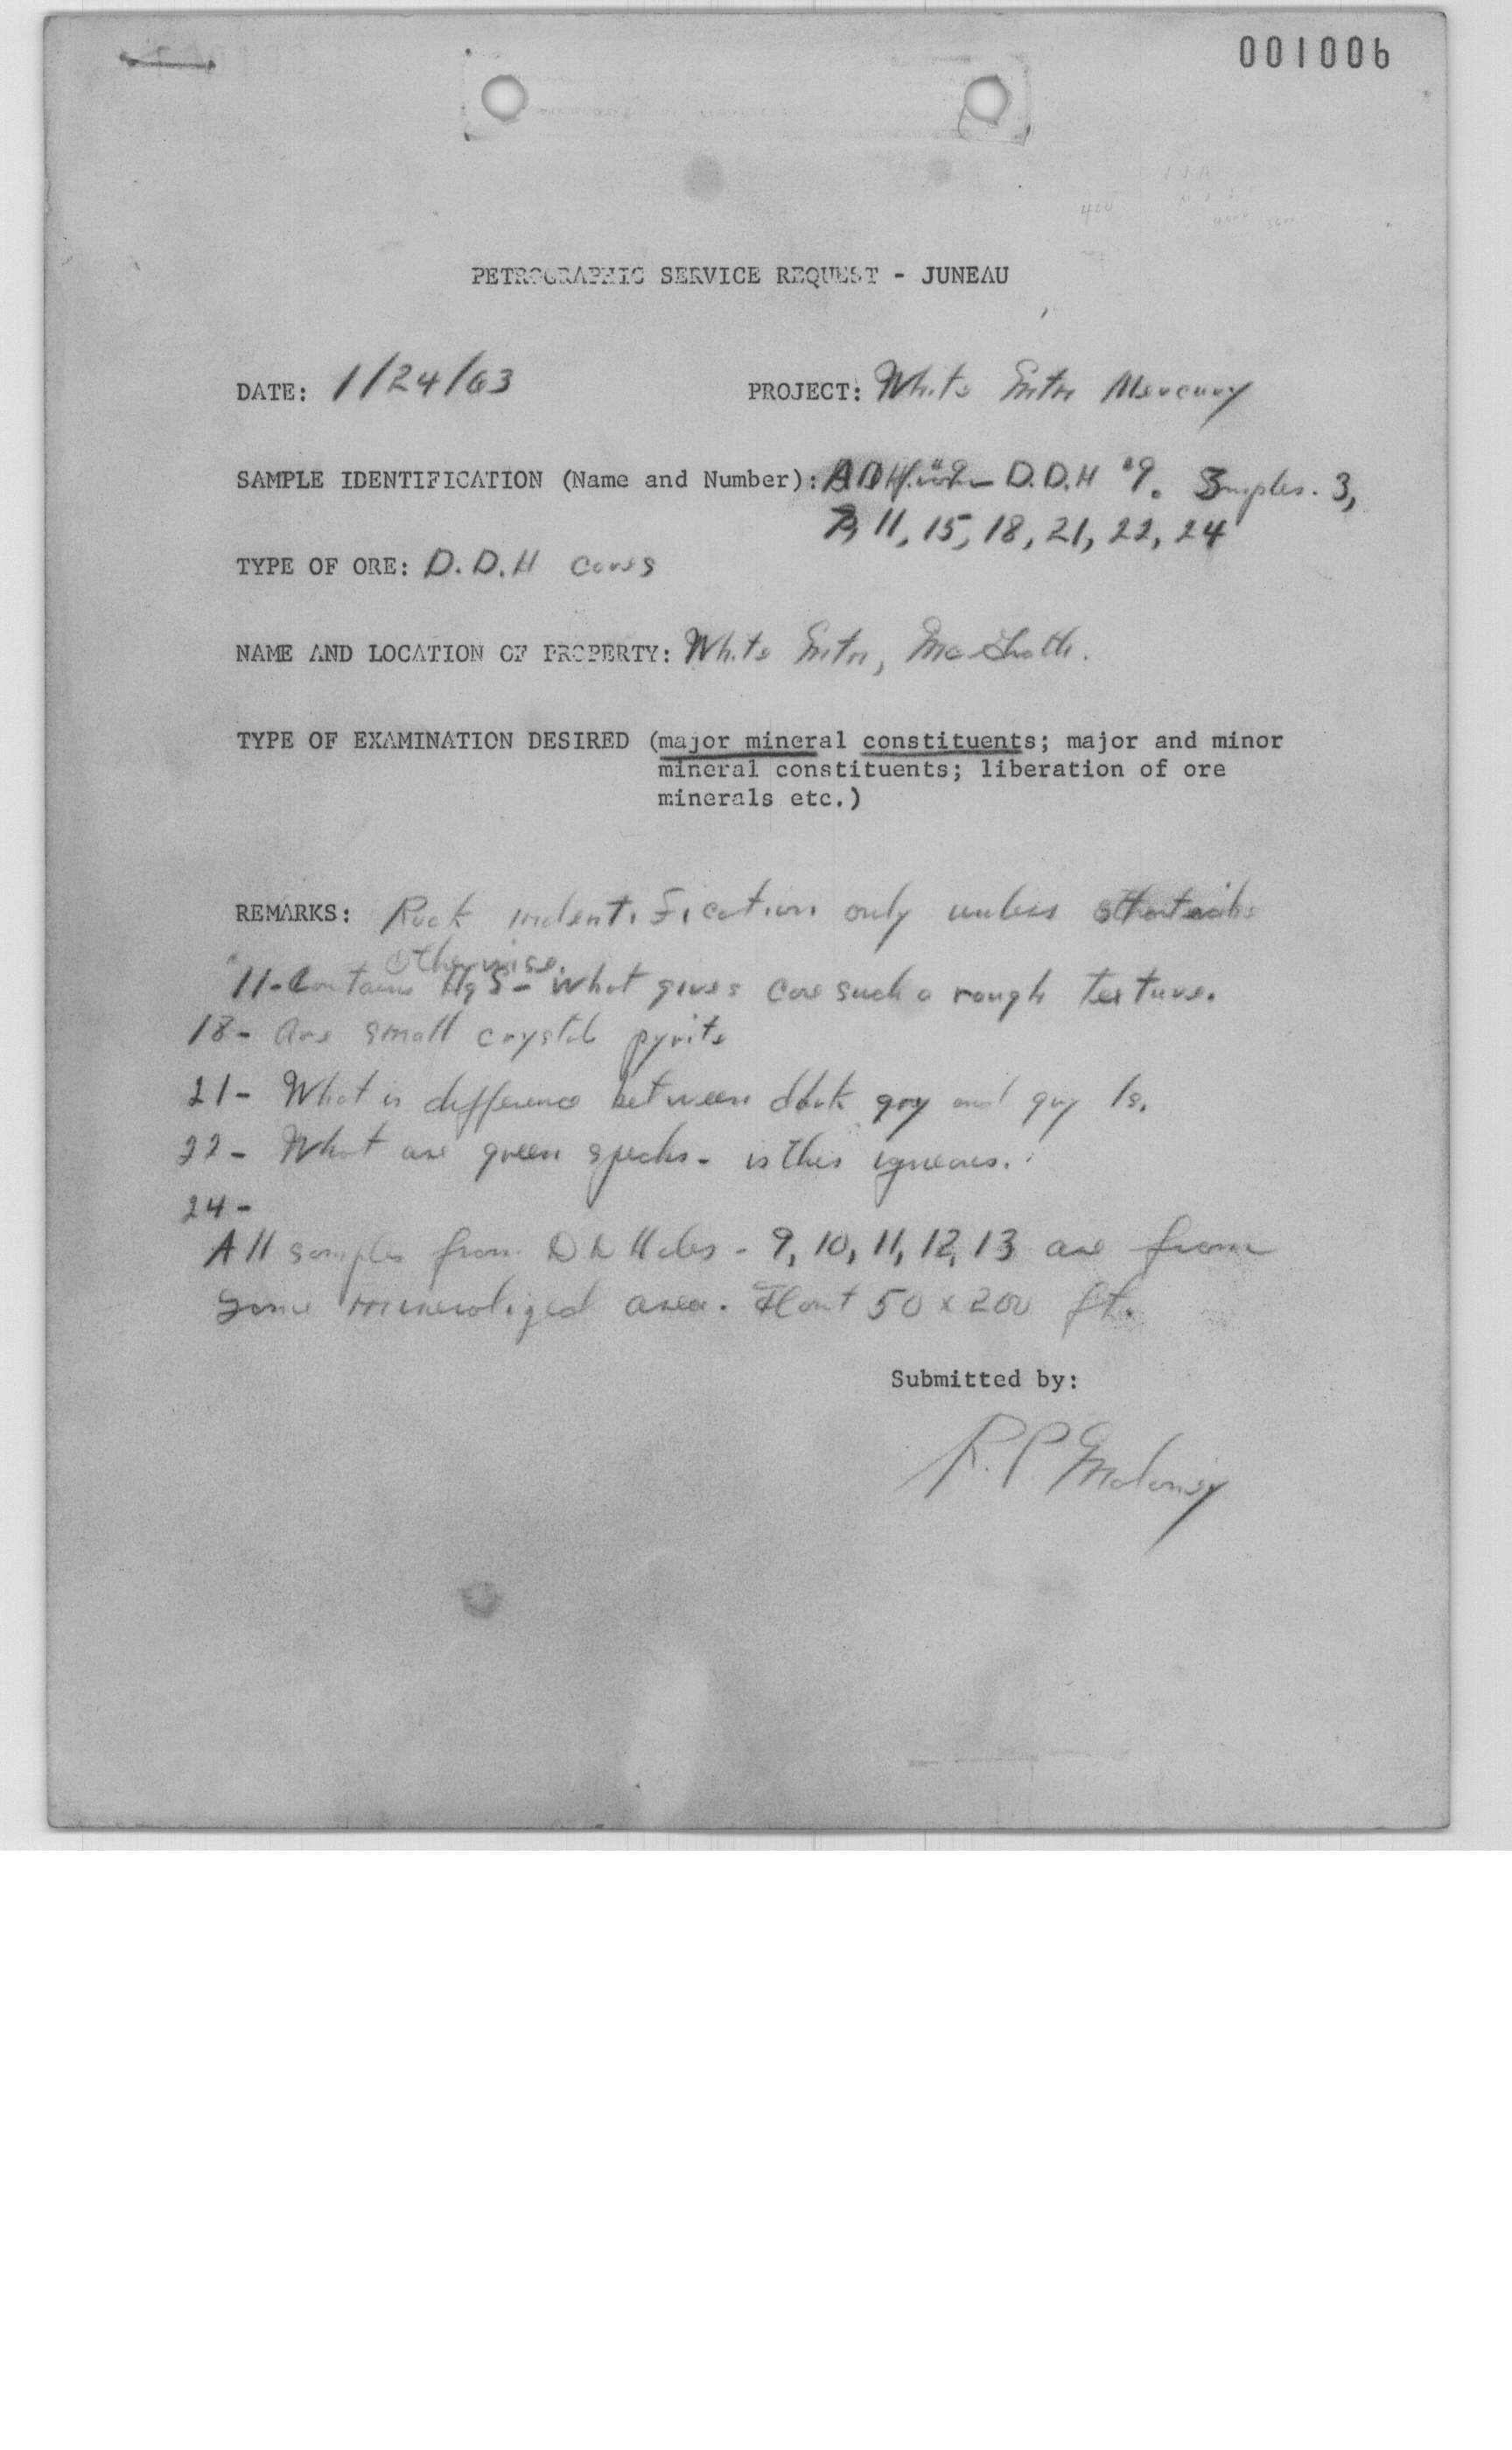 001006
PETROGRAPHIC SERVICE REQUEST - JUNEAU
DATE: 1/24/63 PROJECT: White Mtn Mercury
SAMPLE IDENTIFICATION (Name and Number): D.D.H #9. Samples. 3,
7, 11, 15, 18, 21, 22, 24
TYPE OF ORE: D.D.H cores
NAME AND LOCATION OF PROPERTY: White Mtn, McGrath.
TYPE OF EXAMINATION DESIRED (major mineral constituents; major and minor
mineral constituents; liberation of ore
minerals etc.)
REMARKS: Rock indentification only unless
otherwise.
11- Contains HgS - What gives core such a rough texture.
18- Are small crystals pyrite
21- What is difference between dark gray and gray ls.
22- What are green specks - is this igneous.
24-
All samples from D D Holes - 9, 10, 11, 12, 13 are from
same mineralized area. 50 x 200 ft.
Submitted by:
R.P. Maloney